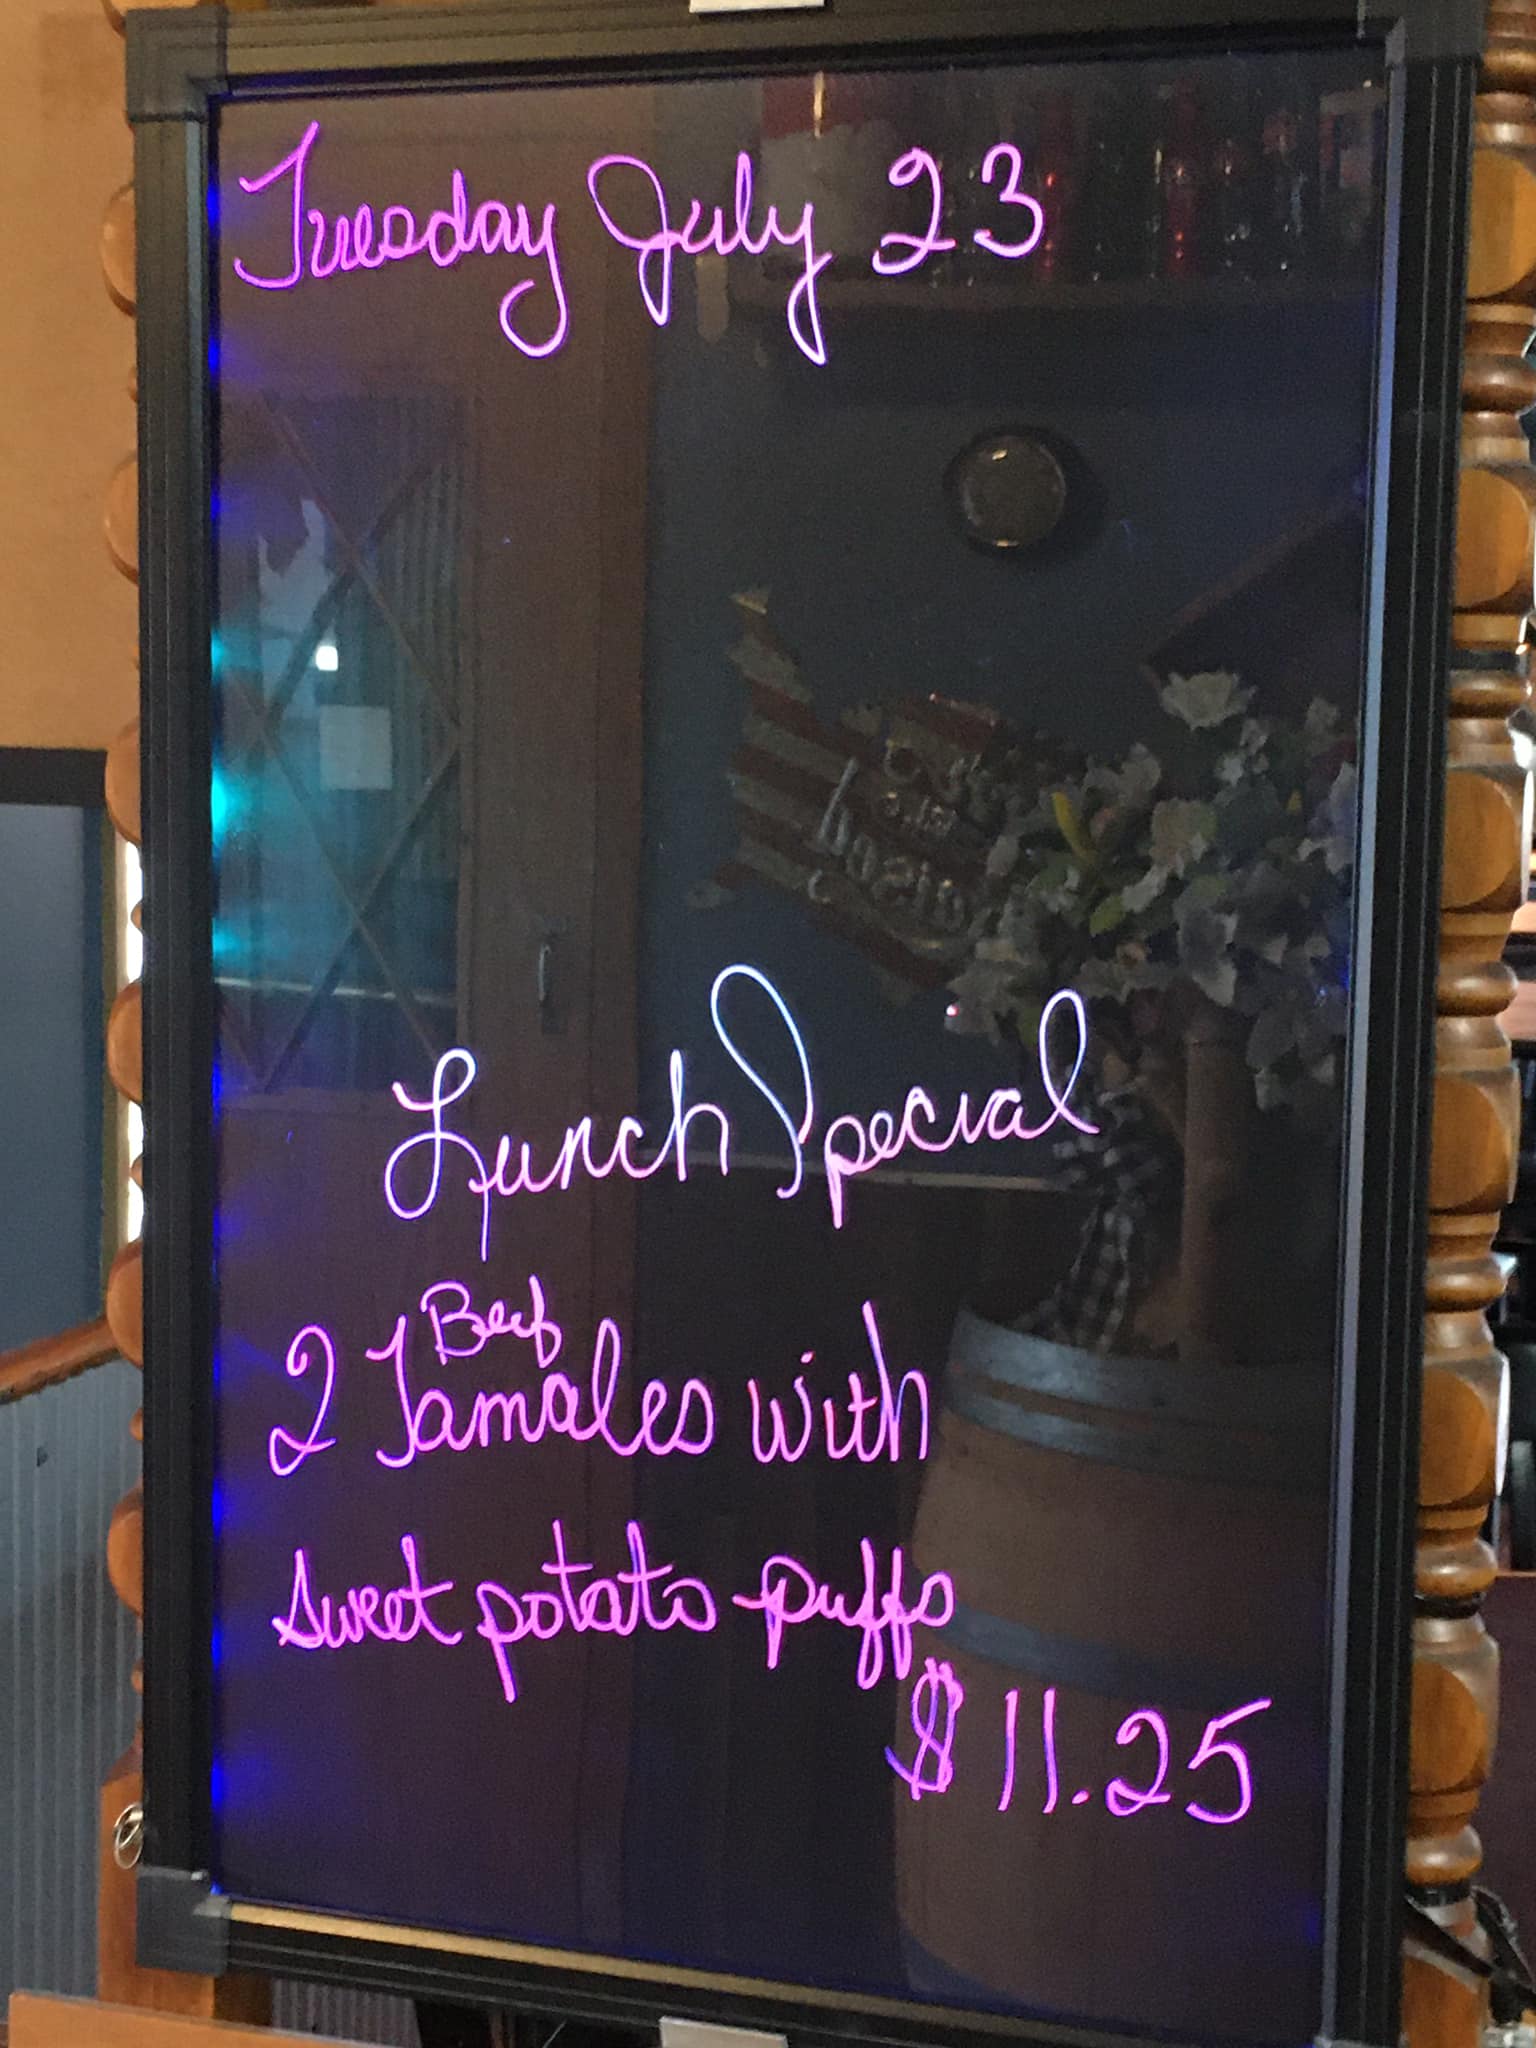 Tuesday July 23
Lunch Special
Beef
2 Tamales with
sweet potato puffs
$11.25